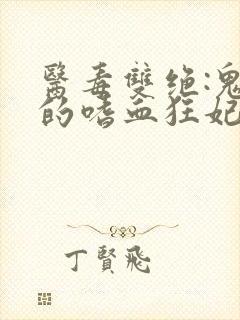 醫毒雙绝:鬼
的嗜血狂妃
丁賢飛